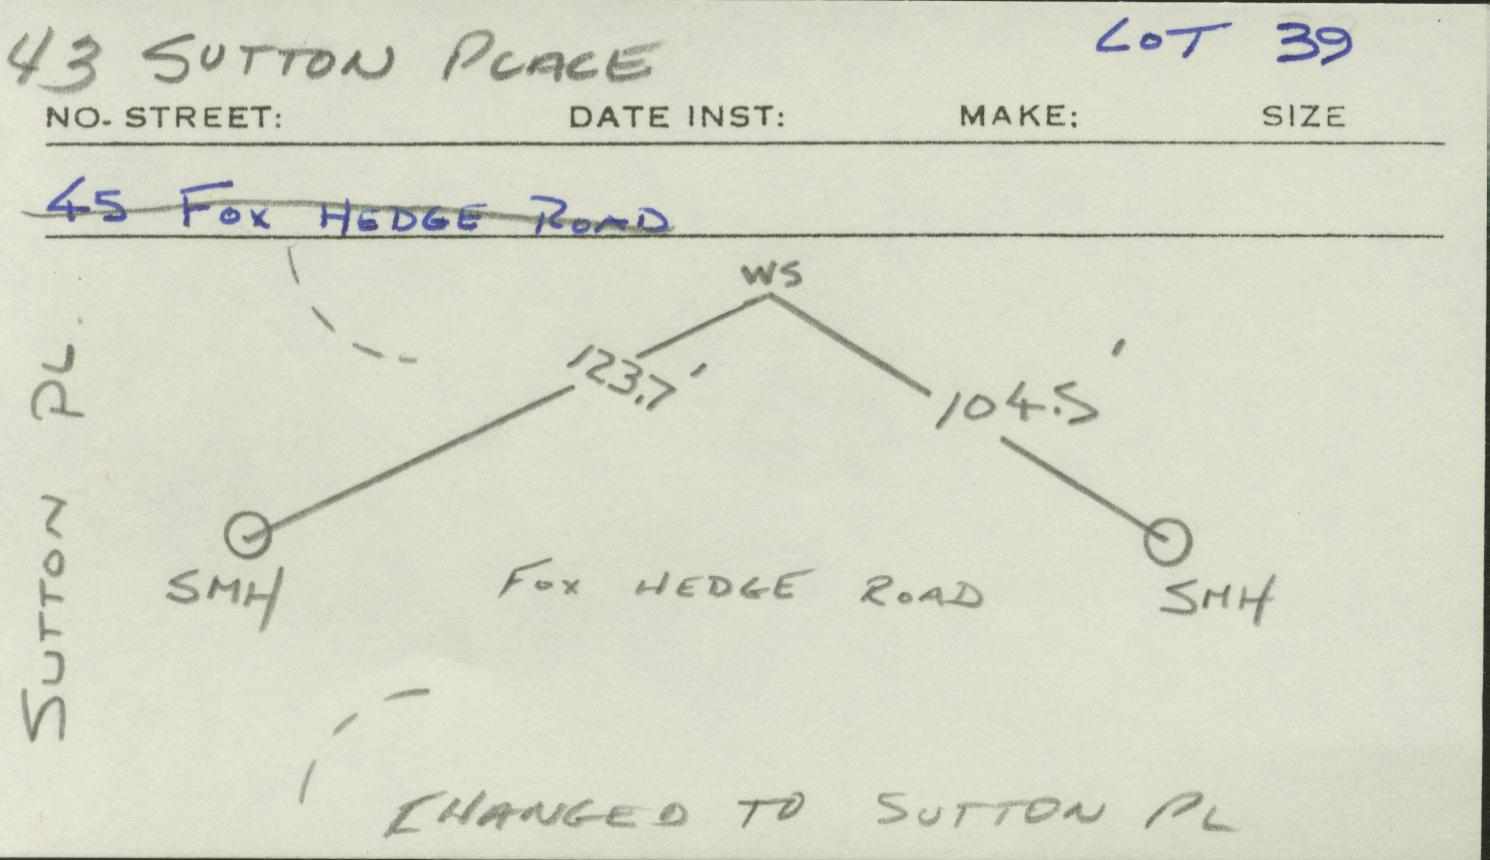 43 SUTTON PLACE LOT 39
NO. STREET: DATE INST: MAKE: SIZE
45 FOX HEDGE ROAD
WS
123.7'
104.5'
SUTTON PL.
SMH
FOX HEDGE ROAD
SMH
CHANGED TO SUTTON PL